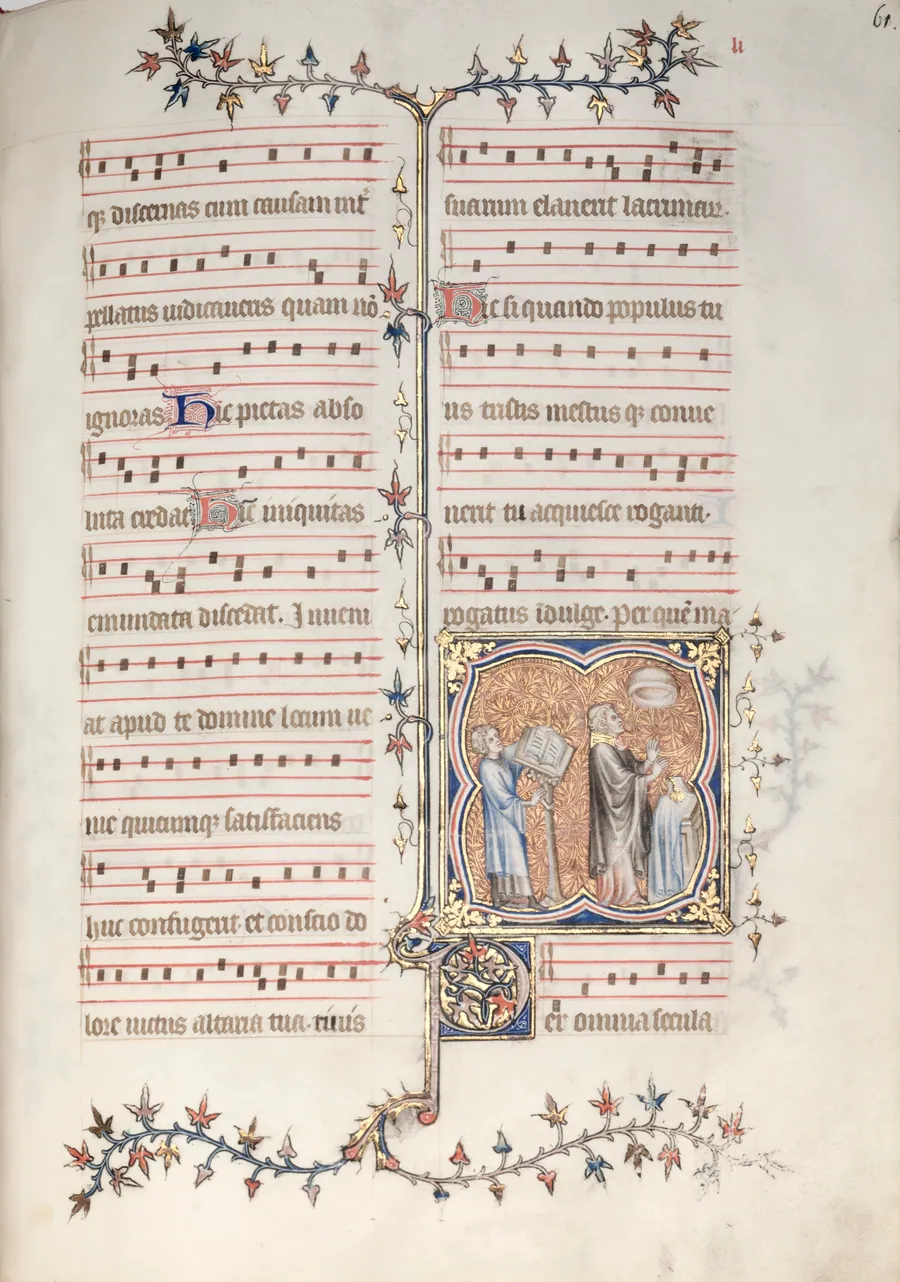 61.
li
q; discernas cum causam int̃
pellatus iudicaueris quam nõ
ignoras. Hic pietas abso
luta credat. Hic iniquitas
emundata discedat. Inueni
at apud te domine locum ue
nie quicumq; satisfaciens
huc confugerit. et conscio do
lore uictus altaria tua. riuis
suarum elauerit lacrimarum.
Hic si quando populus tu
us tristis mestus q; conue
nerit tu acquiesce rogari.
rogatus īdulge. Per quē ma
er omnia secula